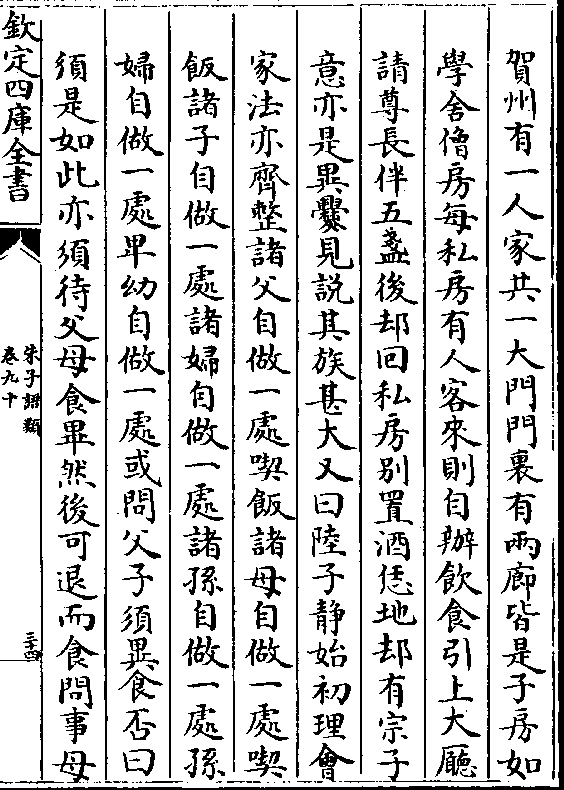 賀州有一人家共一大門門裏有兩廊皆是子房如
學舍僧房每私房有人客來則自辦飲食引上大廳
請尊長伴五盞後却回私房别置酒恁地却有宗子
意亦是異爨見説其族甚大又曰陸子静始初理會
家法亦齊整諸父自做一處喫飯諸母自做一處喫
飯諸子自做一處諸婦自做一處諸孫自做一處孫
婦自做一處卑幼自做一處或問父子須異食否曰
須是如此亦須待父母食畢然後可退而食問事母
欽定四庫全書
朱子語類
卷九十
三十四